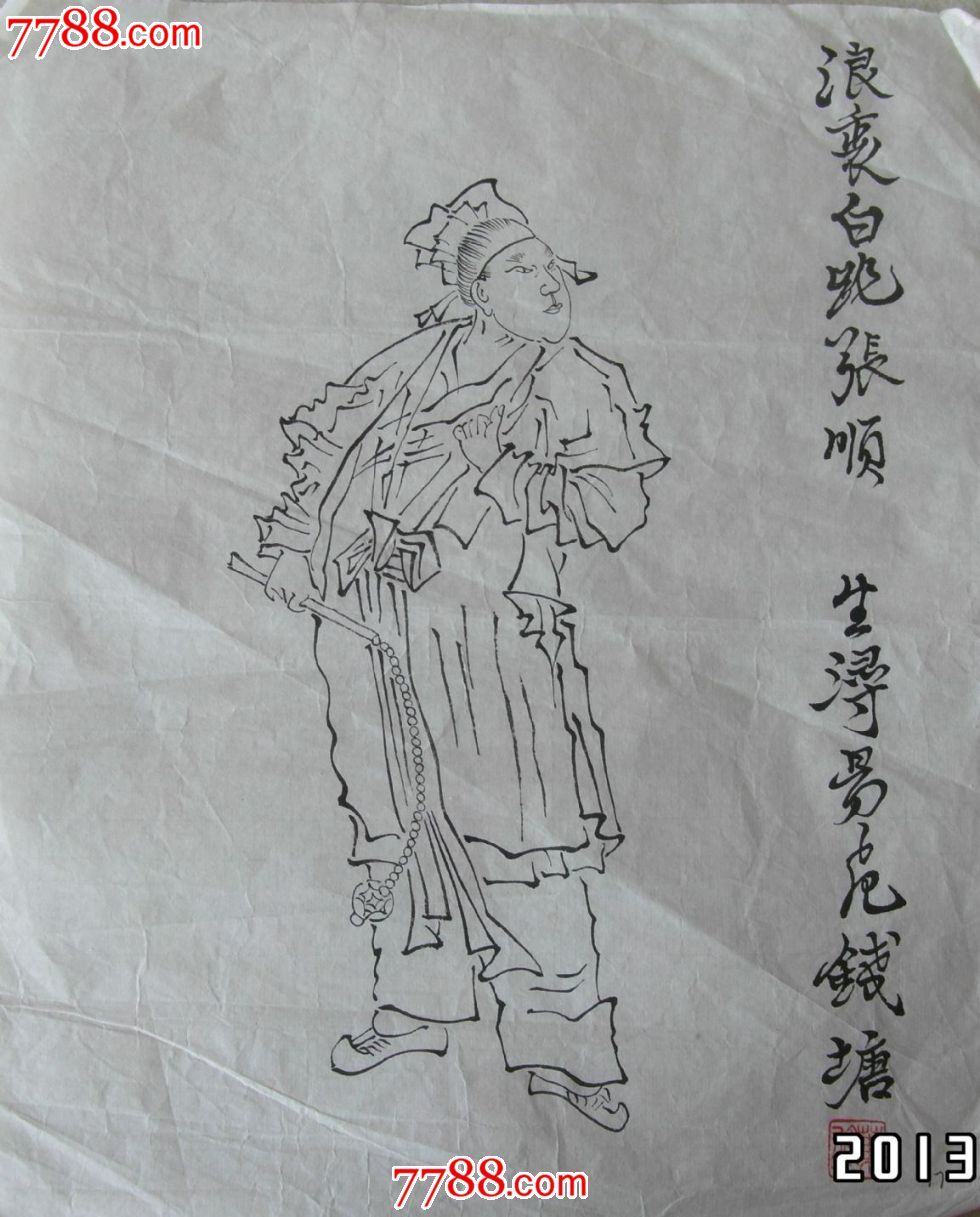 7788.com
浪裏白跳張順 生潯昜死錢塘
2013
7788.com